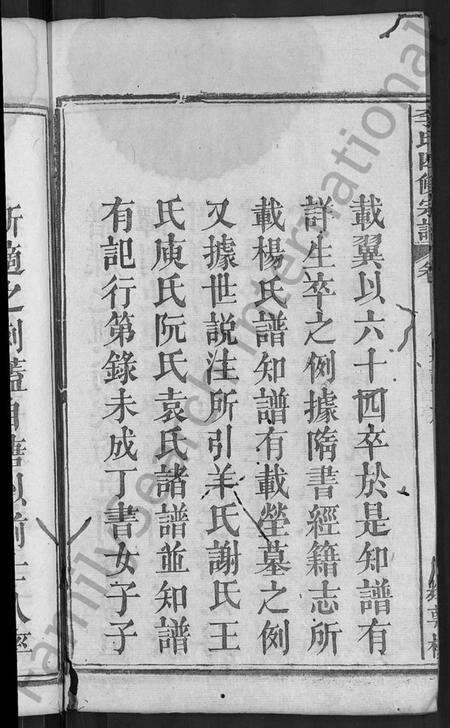 李氏四修宗譜
載翼以六十四卒於是知譜有
詳生卒之例據隋書經籍志所
載楊氏譜知譜有載塋墓之例
又據世說注所引羊氏謝氏王
氏庾氏阮氏袁氏諸譜並知譜
有記行第錄未成丁書女子子
所適之例蓋自唐以前
familysearch international